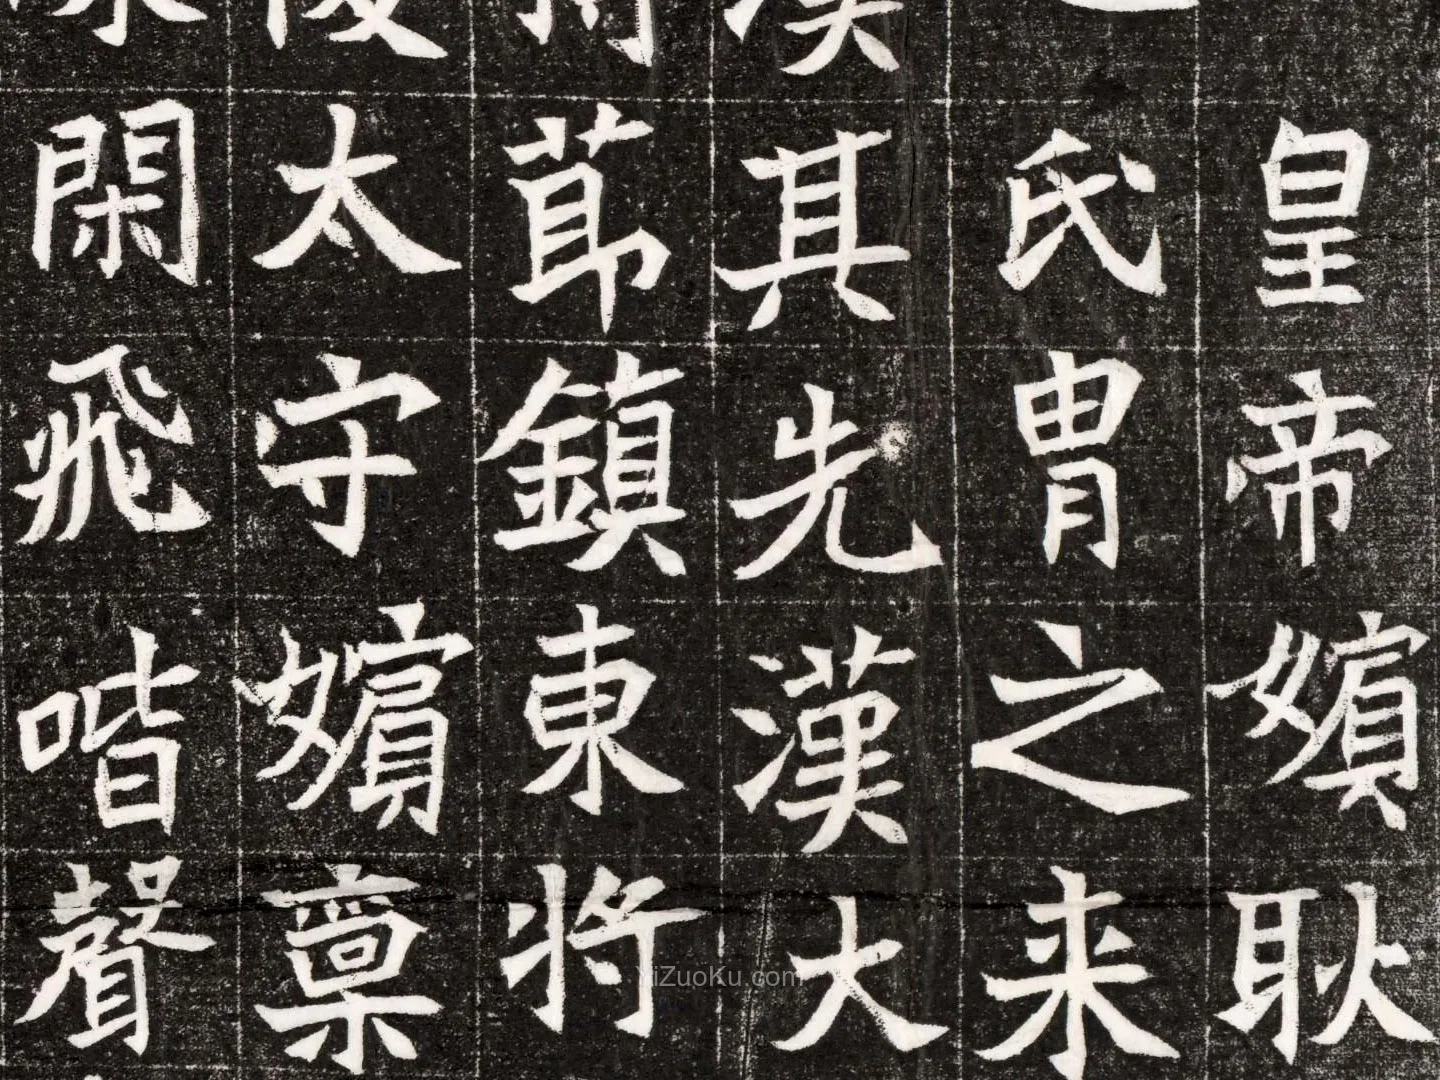 皇帝嬪耿
氏胄之来
漢其先漢大
莭鎮東將
太守嬪稟
閑飛喈聲
YiZuoKu.com